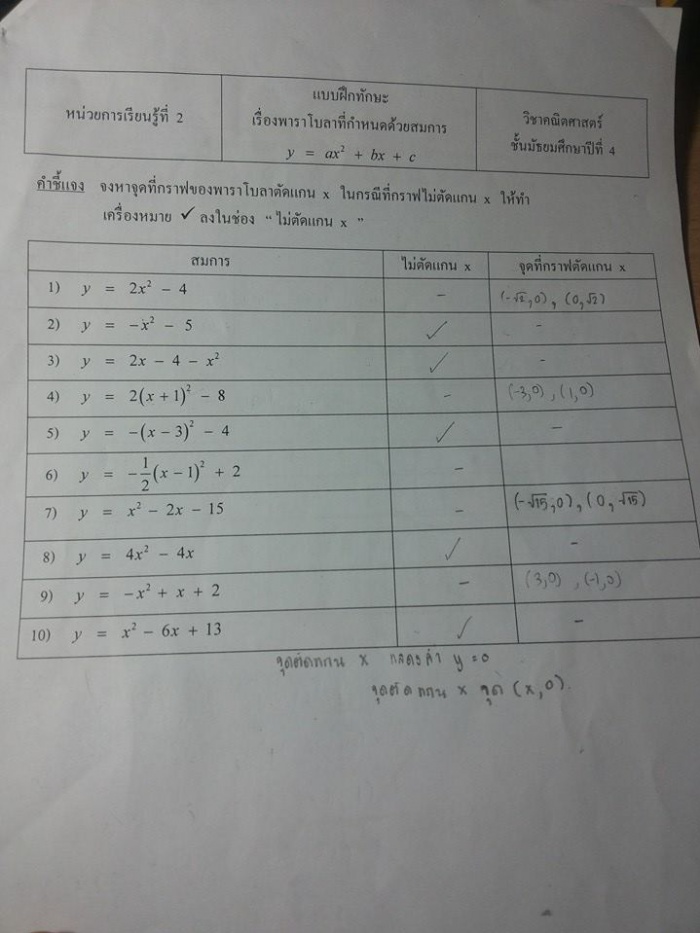 หน่วยการเรียนรู้ที่ 2
แบบฝึกทักษะ
เรื่องพาราโบลาที่กำหนดด้วยสมการ
y = ax² + bx + c
วิชาคณิตศาสตร์
ชั้นมัธยมศึกษาปีที่ 4
คำชี้แจง จงหาจุดที่กราฟของพาราโบลาตัดแกน x ในกรณีที่กราฟไม่ตัดแกน x ให้ทำ
เครื่องหมาย ✓ ลงในช่อง “ ไม่ตัดแกน x ”
สมการ ไม่ตัดแกน x จุดที่กราฟตัดแกน x
1) y = 2x² − 4 – (-√2,0) , (0,√2)
2) y = −x² − 5 ✓ –
3) y = 2x − 4 − x² ✓ –
4) y = 2(x + 1)² − 8 – (-3,0) , (1,0)
5) y = −(x − 3)² − 4 ✓ –
6) y = −1/2(x − 1)² + 2 –
7) y = x² − 2x − 15 – (-√15,0) , (0,√15)
8) y = 4x² − 4x ✓ –
9) y = −x² + x + 2 – (3,0) , (-1,0)
10) y = x² − 6x + 13 ✓ –
จุดตัดแกน x แสดงค่า y = 0
จุดตัดแกน x จุด (x,0)